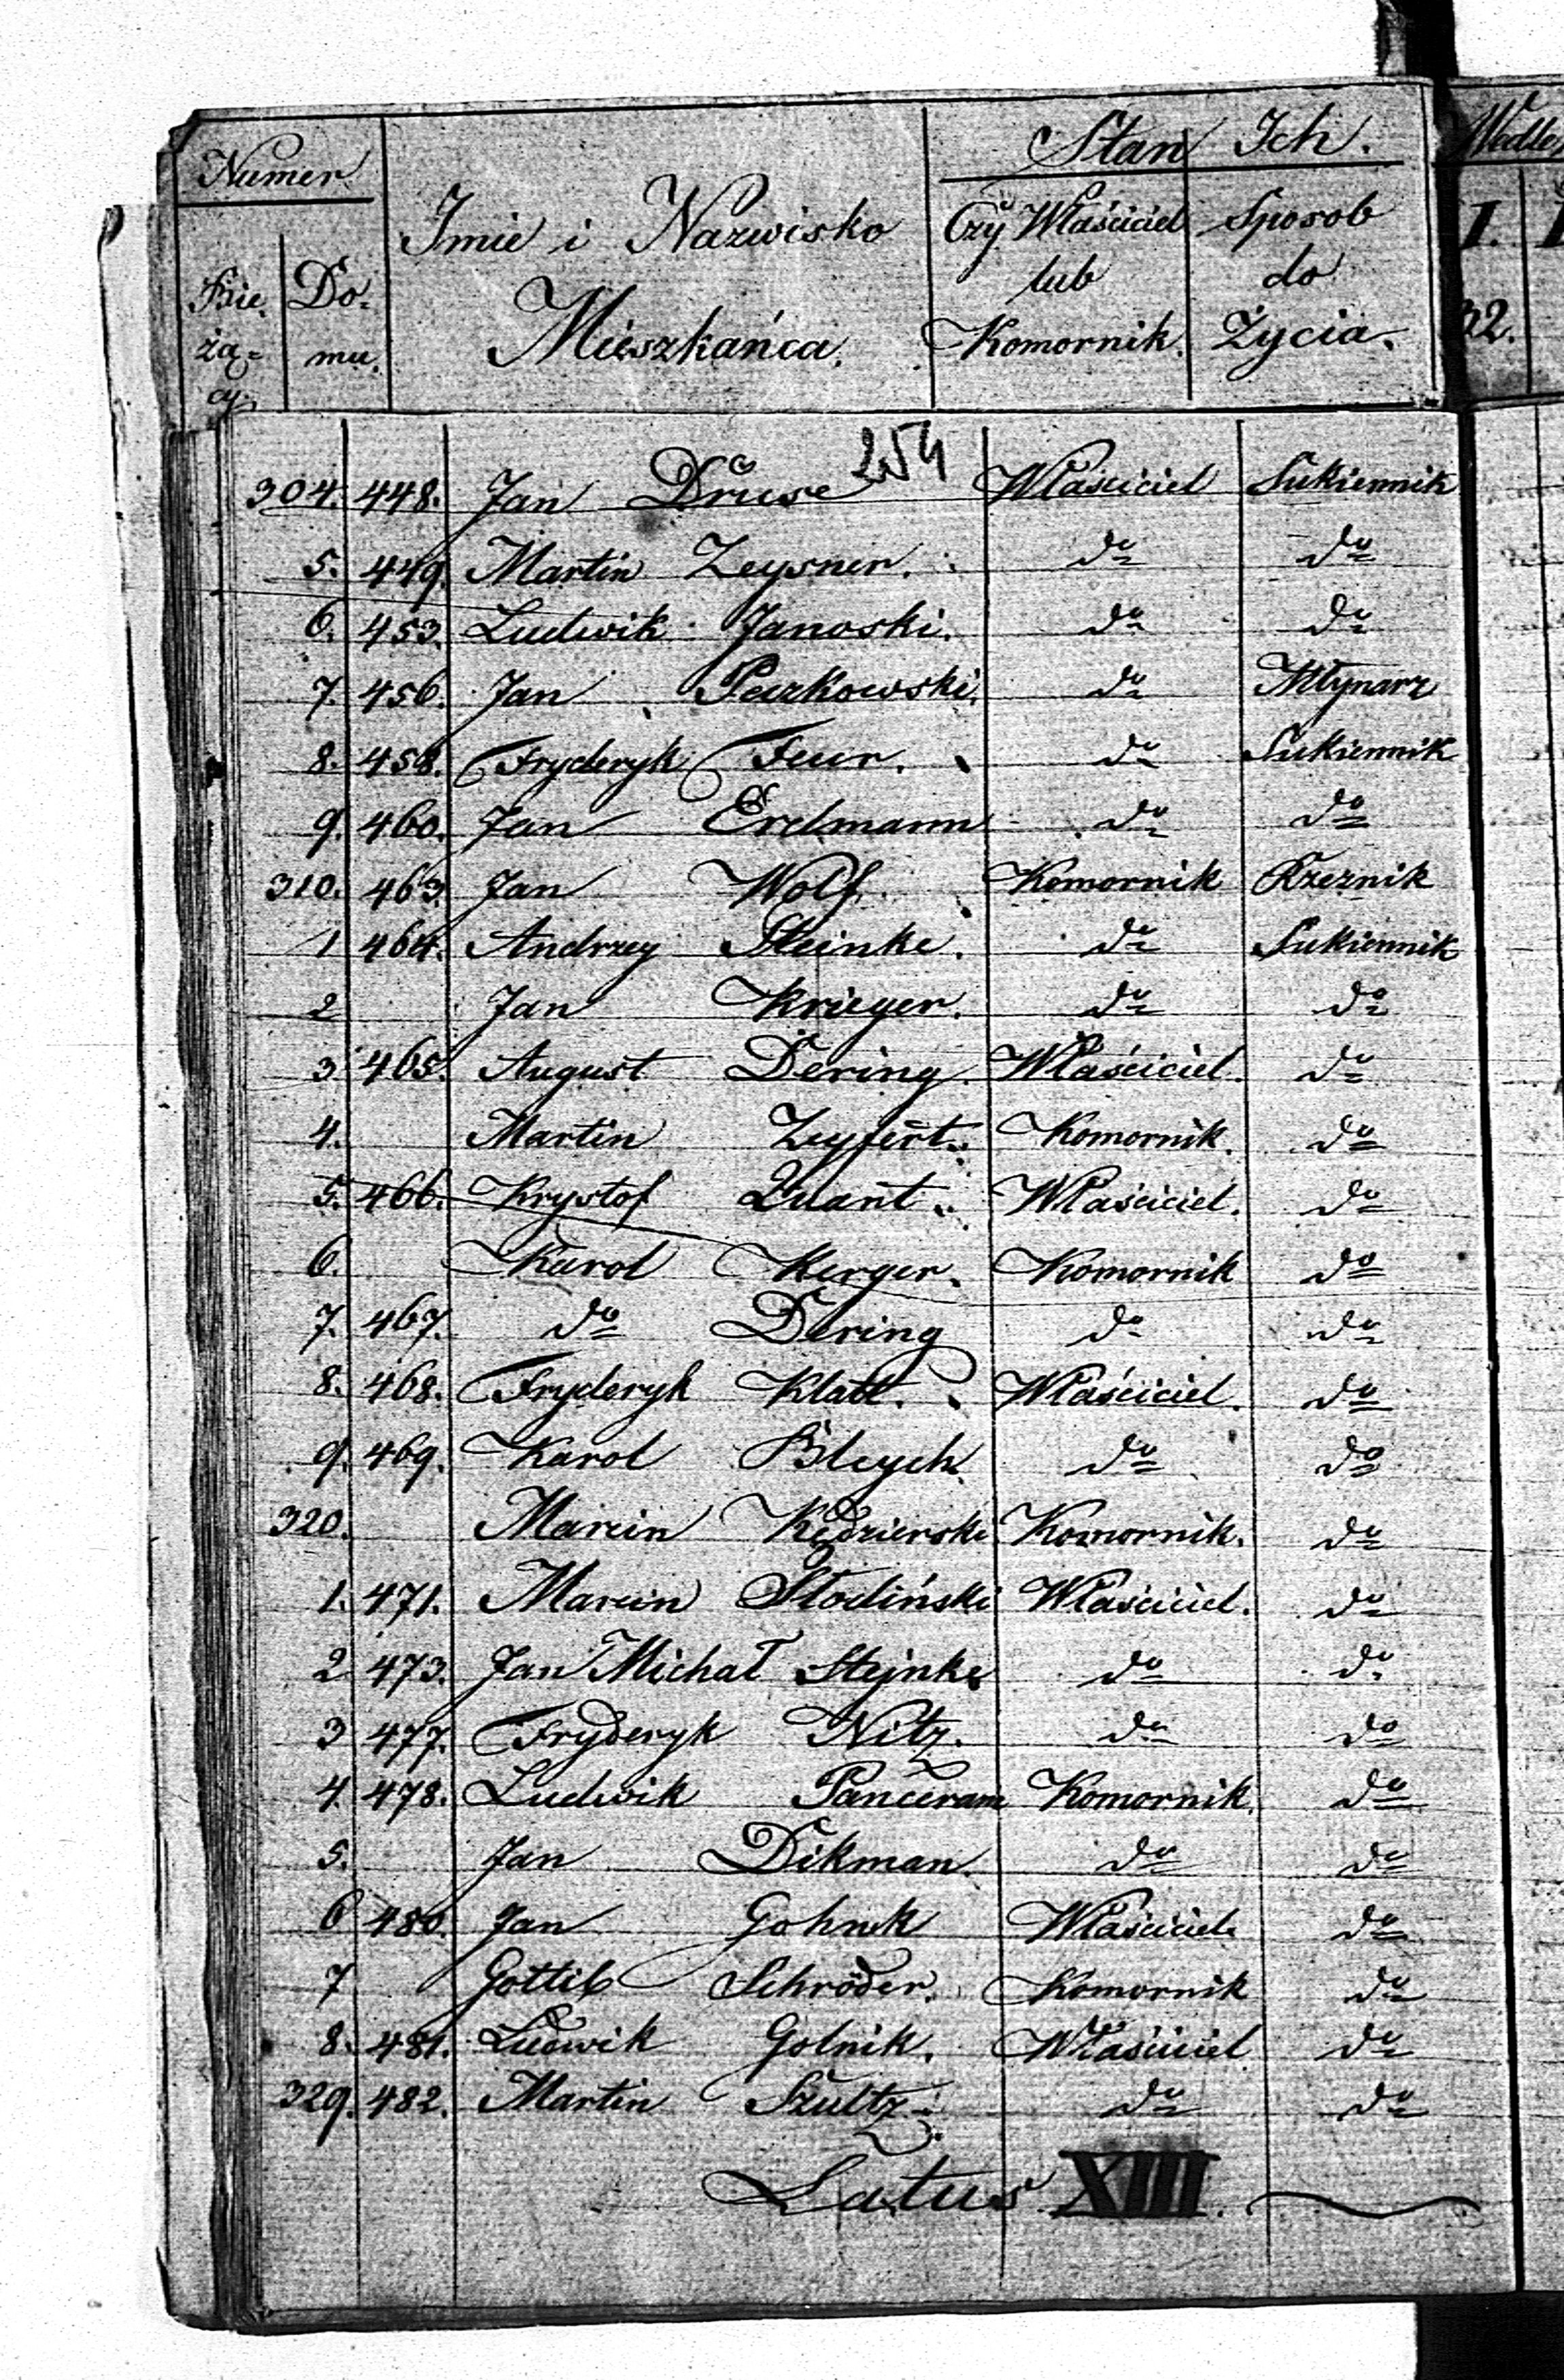 Numer
Bieżący
Domu.
Imie i Nazwisko
Mieszkańca.
Stan Ich.
Czÿ Właściciel
lub
Komornik.
Sposob
do
Życia.
I.
254
304. 448. Jan Druse Właściciel Sukiennik
5. 449. Martin Zeysner. do do
6. 453. Ludwik Janoski. do do
7. 456. Jan Paczkowski do Młynarz
8. 458. Fryderyk Feur. do Sukiennik
9. 460. Jan Erdmann do do
310. 463. Jan Wolf. Komornik Rzeznik
1 464. Andrzey Steinke. do Sukiennik
2 Jan Krieger. do do
3 465. August Dering Właściciel. do
4. Martin Zeyfert. Komornik. do
5. 466. Krystof Quant. Właściciel. do
6. Karol Kerger. Komornik do
7. 467. do Dering do do
8. 468. Fryderyk Klatt. Właściciel. do
9 469. Karol Bleych do do
320. Marcin Kędzierski Komornik. do
1. 471. Marcin Słodiński Właściciel. do
2 473. Jan Michał Stejnke do do
3 477. Fryderyk Nitz. do do
4. 478. Ludwik Komornik. do
5. Jan Dikman. do do
6 480. Jan Gohnk Właściciel do
7 Gottlib Schröder. Komornik do
8. 481. Ludwik Golnik. Właściciel do
329. 482. Martin Szultz do do
Latus XIII.